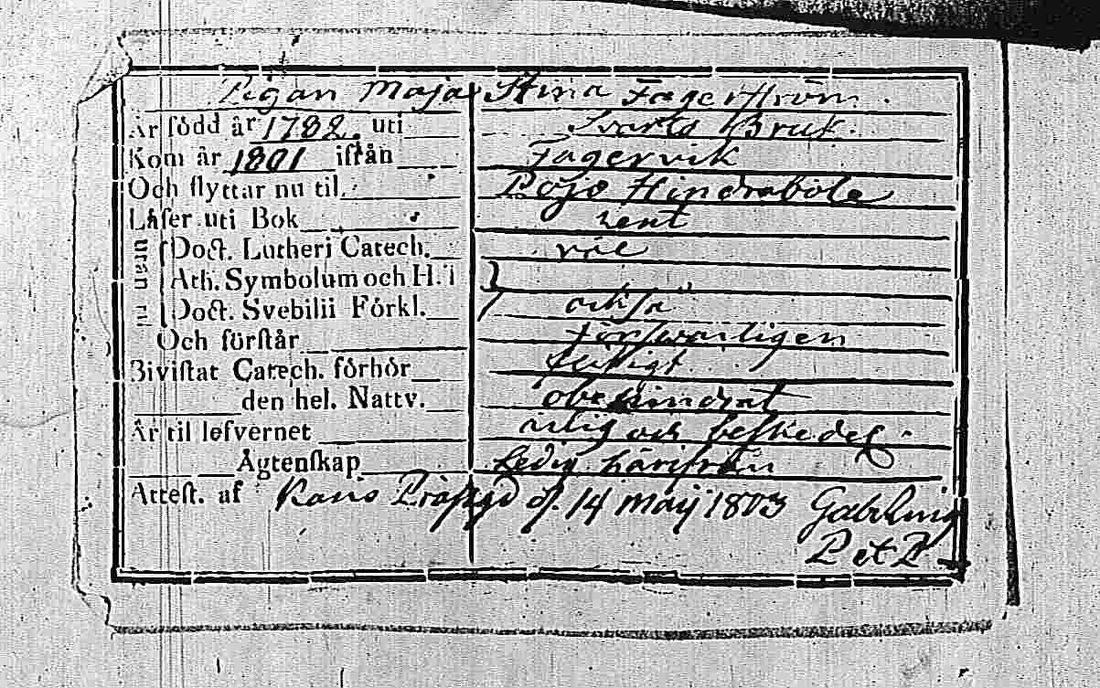 Pigan Maja Stina Fagerström.
Är född år 1782. uti Svarto Bruk.
Kom år 1801 ifrån Fagervik
Och flyttar nu til Pojo Hindrabÿle
Låser uti Bok rent
Doct. Lutheri Catech. väl
Ath. Symbolum och H. T
Doct. Svebilii Förkl. också
Och förstår försvarligen
Bivistat Catech. förhör flitigt
den hel. Nattv. obehindrat
Är til lefvernet ärlig och beskedel.
Ägtenskap Ledig härifrån
Attest. af Karis Prästgd d. 14 Maij 1803
P et P